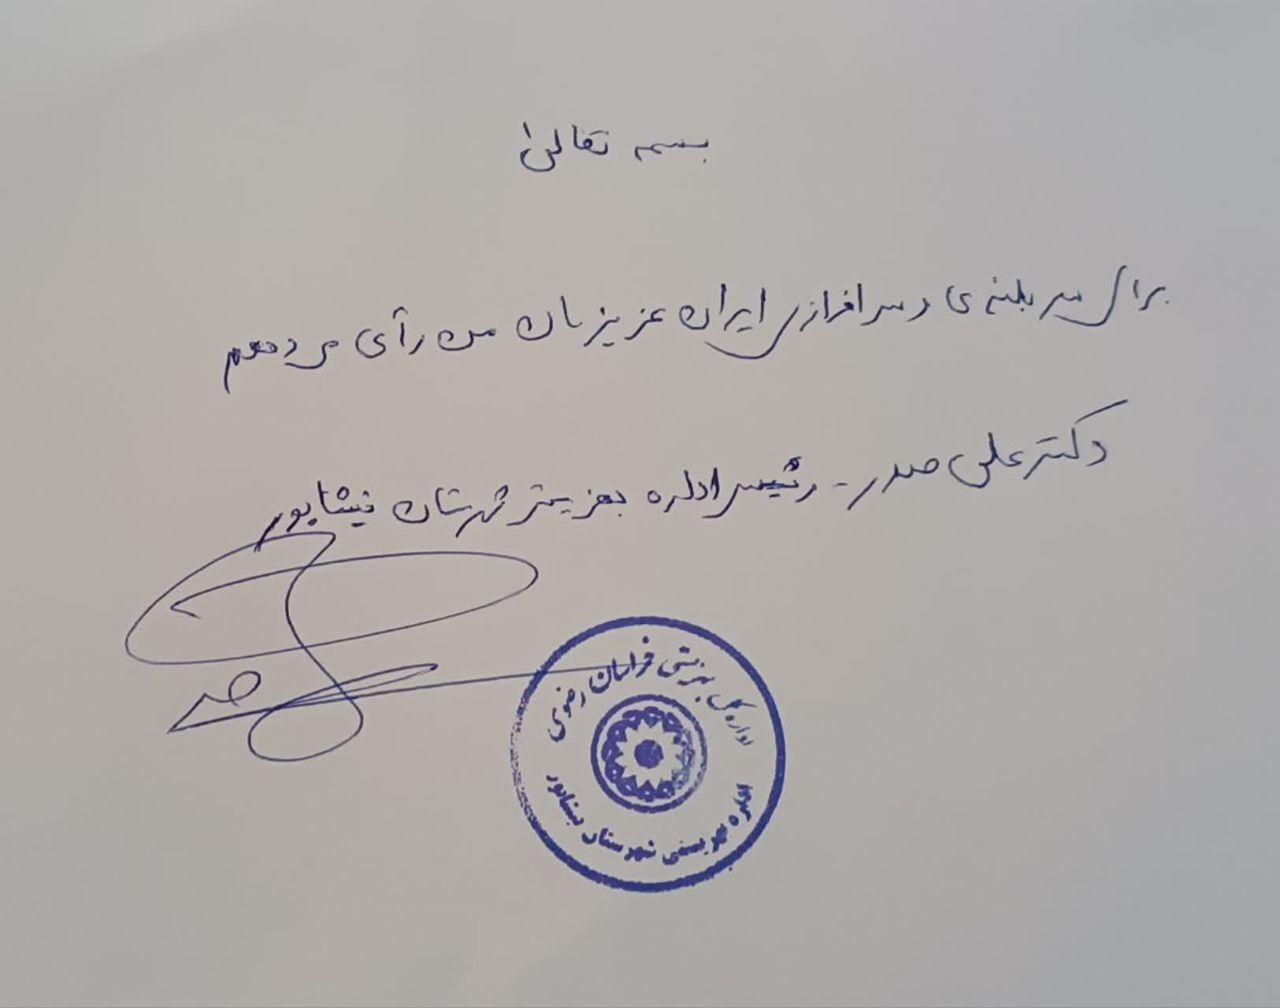 بسمه تعالی
برای سربلندی و سرافرازی ایران عزیزمان من رأی می دهم
دکتر علی صدر - رئیس اداره بهزیستی شهرستان نیشابور
صدر
اداره کل بهزیستی خراسان رضوی
اداره بهزیستی شهرستان نیشابور